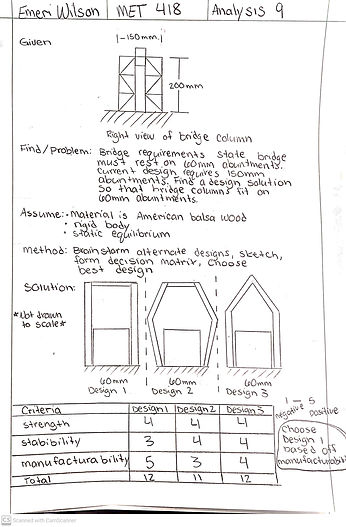 Emeri Wilson MET 418 Analysis 9
Given
150mm
200mm
Right view of bridge column
Find/Problem: Bridge requirements state bridge
must rest on 60mm abuntments.
Current design requires 150mm
abuntments. Find a design solution
So that bridge columns fit on
60mm abuntments.
Assume: • Material is American balsa wood
• rigid body
• static equilibrium
Method: Brainstorm alternate designs, sketch,
form decision matrix, choose
best design
Solution:
*Not drawn
to scale*
60mm 60mm 60mm
Design 1 Design 2 Design 3
1 – 5
negative positive
Criteria Design 1 Design 2 Design 3
strength 4 4 4
stabibility 3 4 4
manufacturability 5 3 4
Total 12 11 12
Choose
Design 1
based off
manufacturabili
CS Scanned with CamScanner